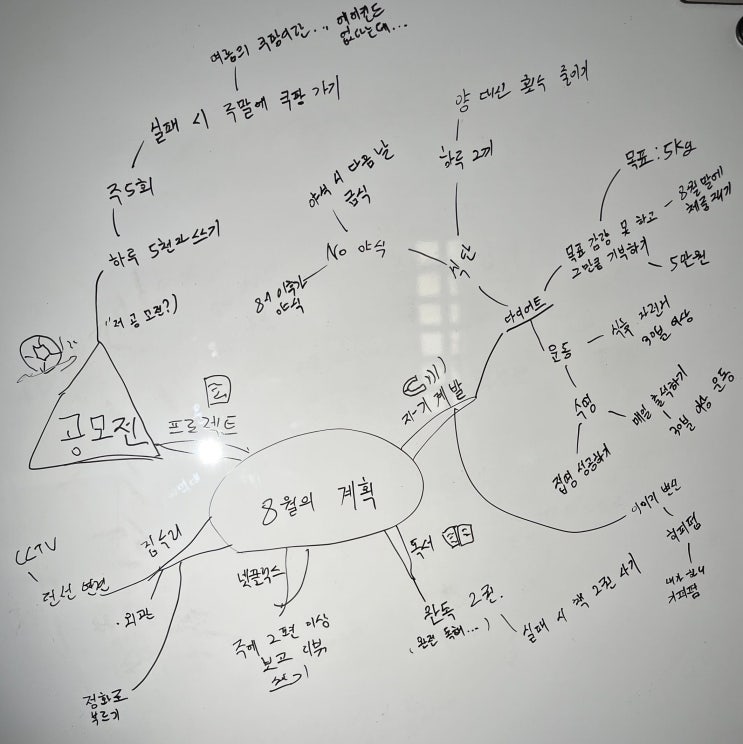 여름의 쿠팡이란.., 에어컨도
없다는데...
실패 시 주말에 쿠팡 가기
주5회
하루 5천자 쓰기
공모전?)
공모전
프로젝트
양 대신 횟수 줄이기
하루 2끼
식단
야식 시 다음 날
금식
No 야식
8시 이후가
야식
목표 : 5kg
목표 감량 못 하고
그만큼 기부하기
8월 말에
체중 재기
5만원
다이어트
운동
식후 자전거
30분 이상
수영
매일 출석하기
30분 이상 운동
접영 성공하기
자기계발
8월의 계획
이미지 변신
히피펌
히피펌
독서
완독 2권.
(완전 독해...)
실패 시 책 2권 사기
넷플릭스
주에 2편 이상
보고 리뷰
쓰기
집수리
CCTV
전선 연결
외관
정화조
부르기